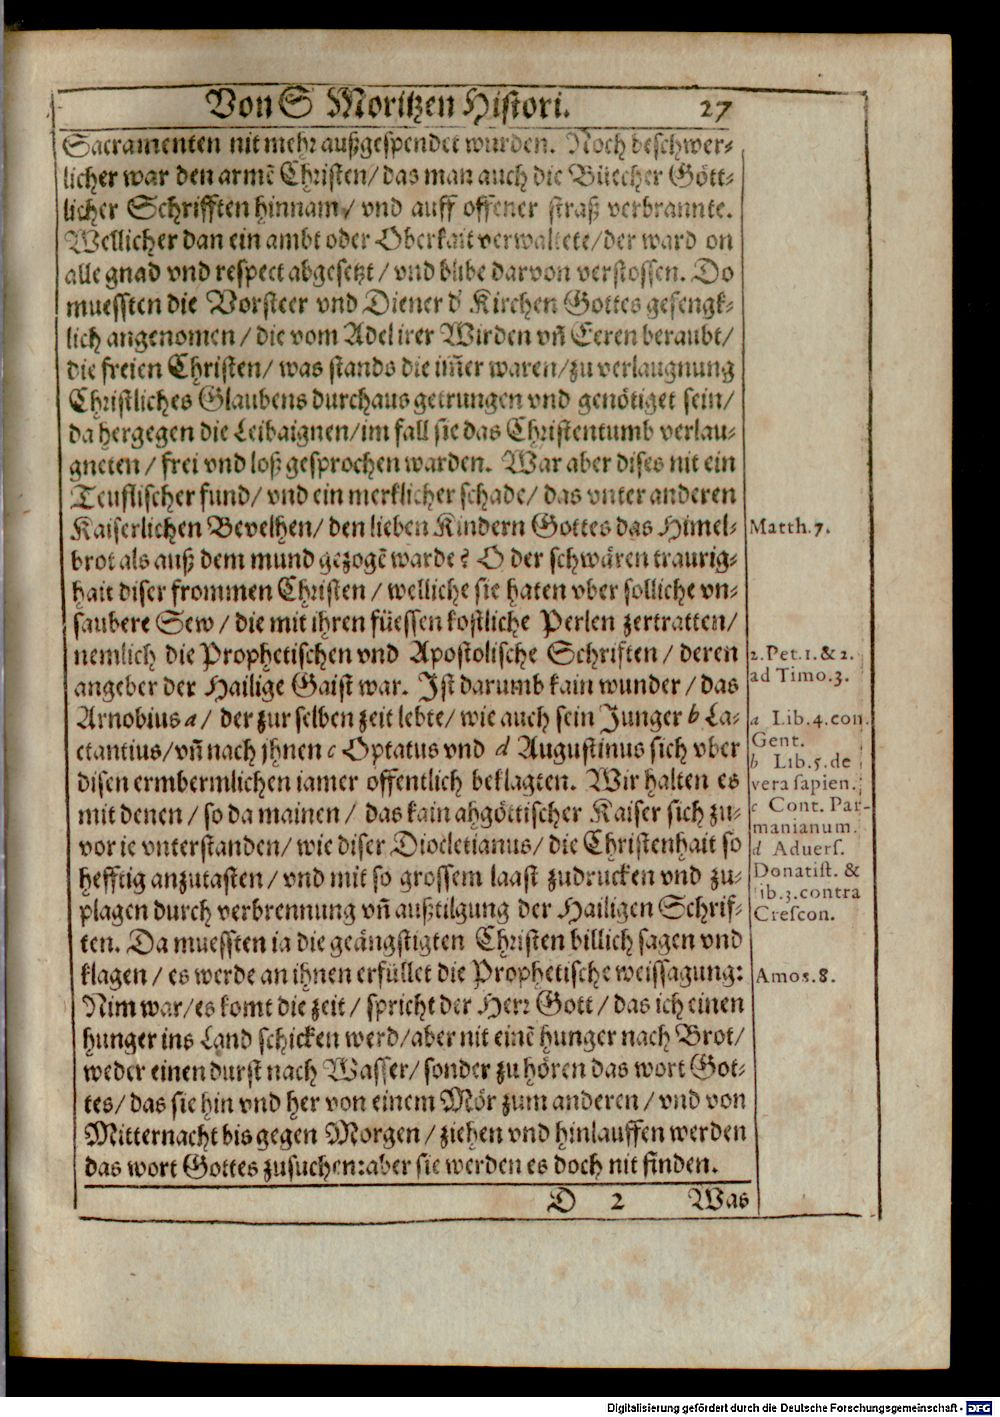 Von S Moritzen Histori. 27
Sacramenten nit mehr außgespendet wurden. Noch beschwer-
licher war den armẽ Christen/ das man auch die Büecher Gött-
licher Schrifften hinnam/ vnd auff offener straß verbrannte.
Wellicher dan ein ambt oder Oberkait verwaltete/ der ward on
alle gnad vnd respect abgesetzt/ vnd blibe darvon verstossen. Do
muessten die Vorsteer vnd Diener d' Kirchen Gottes gefengk-
lich angenomen/ die vom Adel irer Wirden vñ Eeren beraubt/
die freien Christen/ was stands die im̃er waren/ zu verlaugnung
Christliches Glaubens durchaus getrungen vnd genötiget sein/
da hergegen die Leibaignen/ im fall sie das Christentumb verlau-
gneten/ frei vnd loß gesprochen warden. War aber dises nit ein
Teuflischer fund/ vnd ein merklicher schade/ das vnter anderen
Kaiserlichen Bevelhen/ den lieben Kindern Gottes das Himel-
brot als auß dem mund gezogẽ warde? O der schwären traurig-
hait diser frommen Christen/ welliche sie haten vber solliche vn-
saubere Sew/ die mit ihren füessen kostliche Perlen zertratten/
nemlich die Prophetischen vnd Apostolische Schriften/ deren
angeber der Hailige Gaist war. Ist darumb kain wunder/ das
Arnobius a/ der zur selben zeit lebte/ wie auch sein Junger b La-
ctantius/ vñ nach jhnen c Optatus vnd d Augustinus sich vber
disen ermbermlichen iamer offentlich beklagten. Wir halten es
mit denen/ so da mainen/ das kain abgöttischer Kaiser sich zu-
vor ie vnterstanden/ wie diser Diocletianus/ die Christenhait so
hefftig anzutasten/ vnd mit so grossem laast zudrucken vnd zu-
plagen durch verbrennung vñ außtilgung der Hailigen Schrif-
ten. Da muessten ia die geängstigten Christen billich sagen vnd
klagen/ es werde an ihnen erfüllet die Prophetische weissagung:
Nim war/ es komt die zeit/ spricht der Herr Gott/ das ich einen
hunger ins Land schicken werd/ aber nit einẽ hunger nach Brot/
weder einen durst nach Wasser/ sonder zu hören das wort Got-
tes/ das sie hin vnd her von einem Mör zum anderen/ vnd von
Mitternacht bis gegen Morgen/ ziehen vnd hinlauffen werden
das wort Gottes zusuchen: aber sie werden es doch nit finden.
D 2 Was
Matth. 7.
2. Pet. 1. & 2.
ad Timo. 3.
a Lib. 4. con.
Gent.
b Lib. 5. de
vera sapien.
c Cont. Par-
manianum.
d Advers.
Donatist. &
lib. 3. contra
Crescon.
Amos. 8.
Digitalisierung gefördert durch die Deutsche Forschungsgemeinschaft - DFG